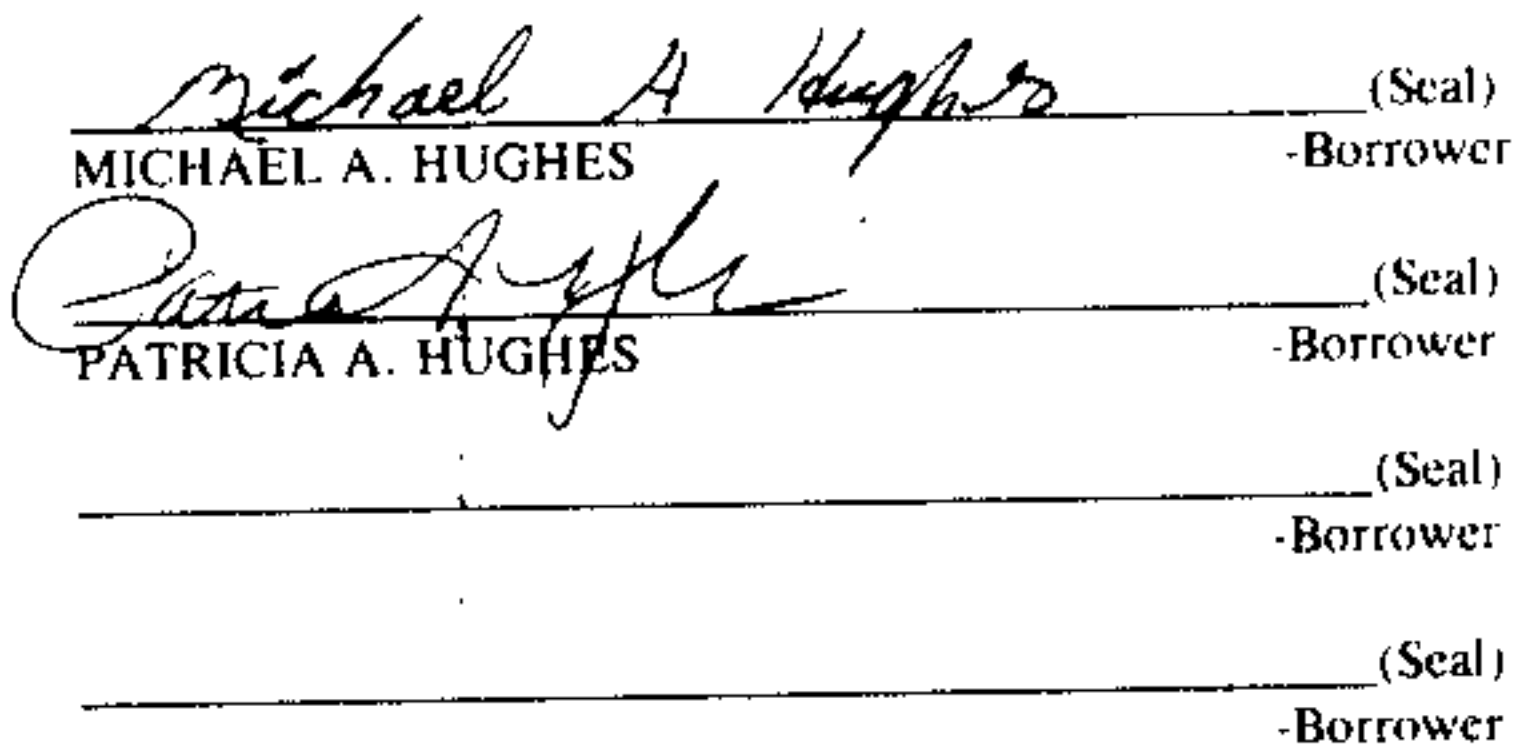 Michael A Hughes (Seal)
MICHAEL A. HUGHES -Borrower
Patricia A Hughes (Seal)
PATRICIA A. HUGHES -Borrower
(Seal)
-Borrower
(Seal)
-Borrower